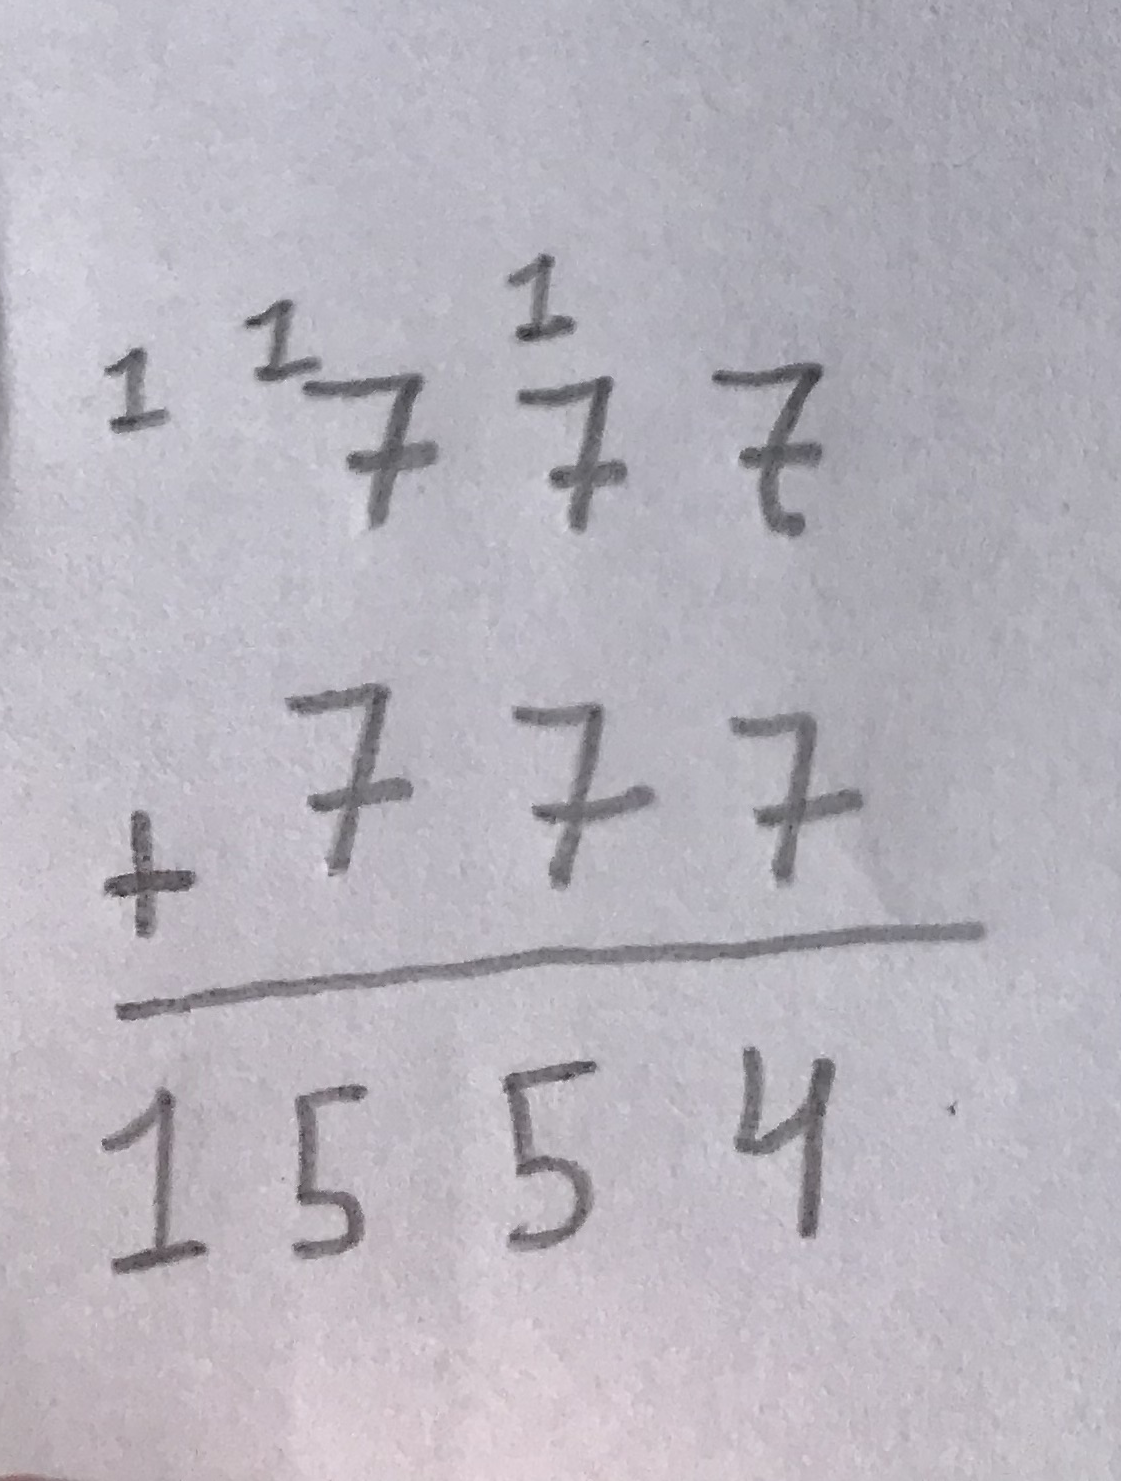 1 1 1
7 7 7
+ 7 7 7
1 5 5 4